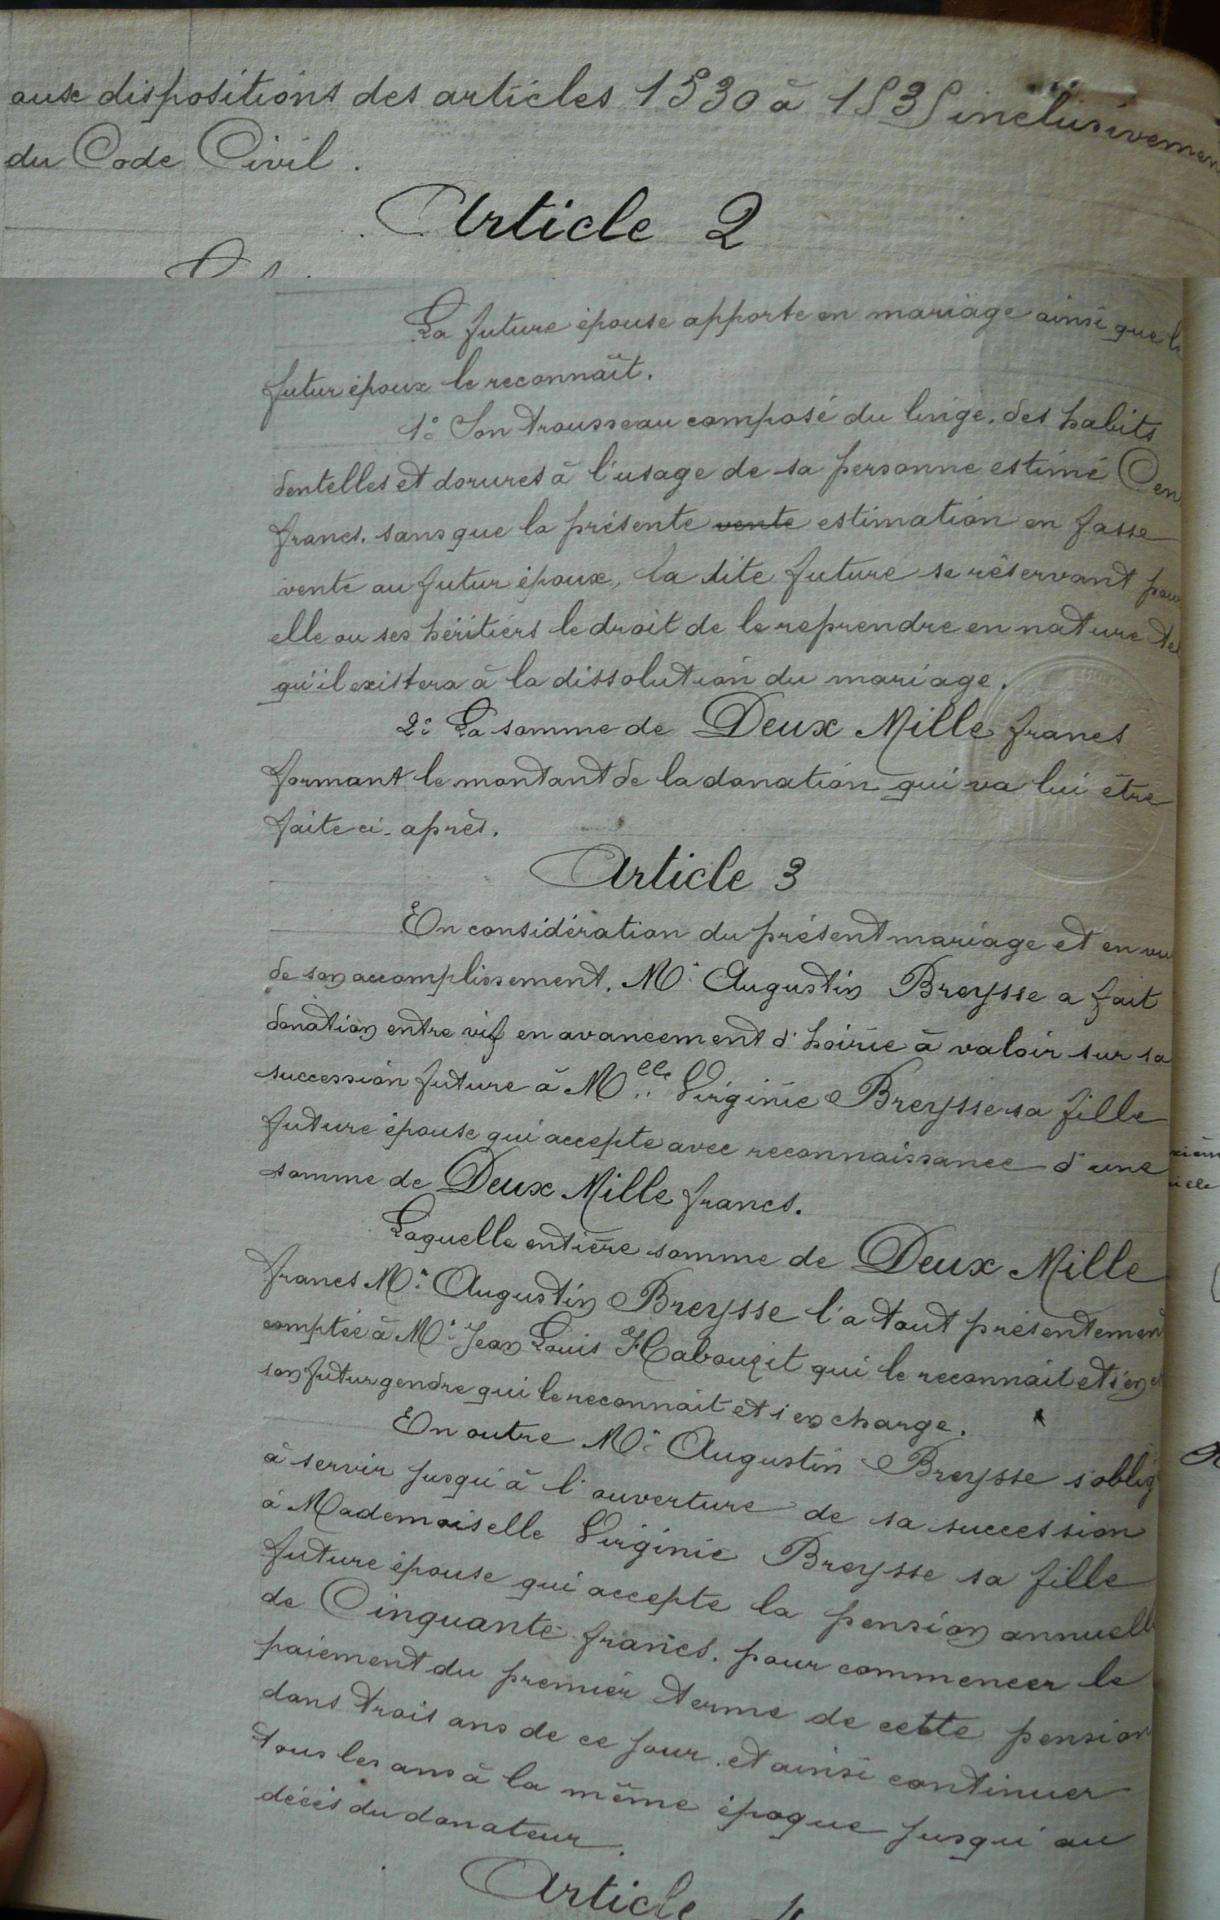 aux dispositions des articles 1530 à 1535 inclusivemen
du Code Civil.
Article 2
La future épouse apporte en mariage ainsi que le
futur époux le reconnaît.
1º Son trousseau composé du linge, des habits
dentelles et dorures à l'usage de sa personne estimé Cen
francs. sans que la présente vente estimation en fasse
vente au futur époux, la dite future se réservant pour
elle ou ses héritiers le droit de le reprendre en nature tel
qu'il existera à la dissolution du mariage.
2º La somme de Deux Mille francs
formant le montant de la donation qui va lui être
faite ci-après.
Article 3
En considération du présent mariage et en vu
de son accomplissement, Mr Augustin Breysse a fait
donation entre vif en avancement d'hoirie à valoir sur sa
succession future à Melle Virginie Breysse sa fille
future épouse qui accepte avec reconnaissance d'une
somme de Deux Mille francs.
Laquelle entière somme de Deux Mille
francs Mr Augustin Breysse l'a tout présentement
comptée à Mr Jean Louis Habouzit qui le reconnait et s'en
son futur gendre qui le reconnait et s'en charge.
En outre Mr Augustin Breysse s'oblig
à servir jusqu'à l'ouverture de sa succession
à Mademoiselle Virginie Breysse sa fille
future épouse qui accepte la pension annuelle
de Cinquante francs. pour commencer le
paiement du premier terme de cette pension
dans trois ans de ce jour. et ainsi continuer
tous les ans à la même époque jusqu'au
décès du donateur.
Article 4